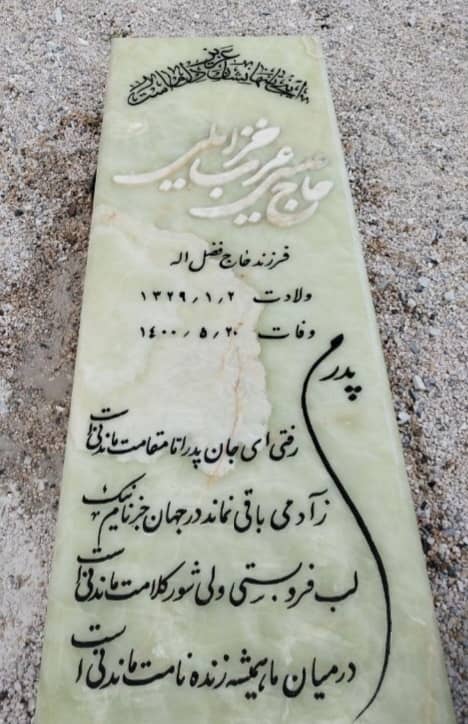 حاج عیسی عرب خزایلی
فرزند حاج فضل اله
ولادت ۱۳۲۹/۱/۲
وفات ۱۴۰۰/۵/۲۰
پدر
رفتی ای جان پدر اما مقامت ماندنی است
ز آدمی باقی نماند در جهان جز نام نیک
لب فرو بستی ولی شور کلامت ماندنی است
در میان ما همیشه زنده نامت ماندنی است